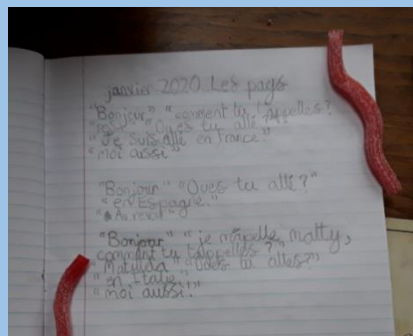 janvier 2020 Les pays
"Bonjour" "comment tu t'appelles?
"Ou es tu allé?"
"Je suis allé en france."
"moi aussi"
"Bonjour" "Oues tu allé?"
"en Espagne."
"Au revoir"
"Bonjour" "je m'apelle matty,
comment tu t'appelles?"
"Matylda" "Oues tu alles?"
"en Italie"
"moi aussi!"